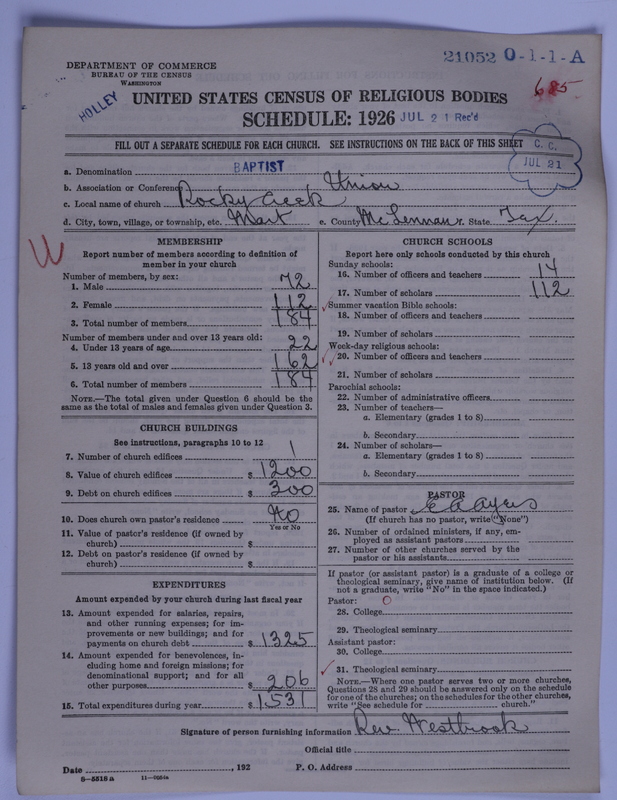 DEPARTMENT OF COMMERCE
BUREAU OF THE CENSUS
WASHINGTON
21052 0-1-1-A
685
HOLLEY
UNITED STATES CENSUS OF RELIGIOUS BODIES
SCHEDULE: 1926 JUL 21 Rec'd
FILL OUT A SEPARATE SCHEDULE FOR EACH CHURCH. SEE INSTRUCTIONS ON THE BACK OF THIS SHEET
C. C.
JUL 21
a. Denomination BAPTIST
b. Association or Conference Union
c. Local name of church Rocky Creek
d. City, town, village, or township, etc. Mart e. County McLennan f. State Tex.
W
MEMBERSHIP
Report number of members according to definition of member in your church
Number of members, by sex:
1. Male 72
2. Female 112
3. Total number of members 184
Number of members under and over 13 years old:
4. Under 13 years of age 22
5. 13 years old and over 162
6. Total number of members 184
NOTE.—The total given under Question 6 should be
same as the total of males and females given under Question 3.
CHURCH BUILDINGS
See instructions, paragraphs 10 to 12
7. Number of church edifices 1
8. Value of church edifices $ 1200
9. Debt on church edifices $ 300
10. Does church own pastor's residence No
Yes or No
11. Value of pastor's residence (if owned by
church) $
12. Debt on pastor's residence (if owned by
church) $
EXPENDITURES
Amount expended by your church during last fiscal year
13. Amount expended for salaries, repairs,
and other running expenses; for im-
provements or new buildings; and for
payments on church debt $ 1325
14. Amount expended for benevolences, in-
cluding home and foreign missions; for
denominational support; and for all
other purposes $ 206
15. Total expenditures during year $ 1531
CHURCH SCHOOLS
Report here only schools conducted by this church
Sunday schools:
16. Number of officers and teachers 14
17. Number of scholars 112
Summer vacation Bible schools:
18. Number of officers and teachers
19. Number of scholars
Week-day religious schools:
20. Number of officers and teachers
21. Number of scholars
Parochial schools:
22. Number of administrative officers
23. Number of teachers—
a. Elementary (grades 1 to 8)
b. Secondary
24. Number of scholars—
a. Elementary (grades 1 to 8)
b. Secondary
PASTOR
25. Name of pastor E A Ayers
(If church has no pastor, write "None")
26. Number of ordained ministers, if any, em-
ployed as assistant pastors
27. Number of other churches served by the
pastor or his assistants
If pastor (or assistant pastor) is a graduate of a college or
theological seminary, give name of institution below. (If
not a graduate, write "No" in the space indicated.)
Pastor: O
28. College
29. Theological seminary
Assistant pastor:
30. College
31. Theological seminary
NOTE.—Where one pastor serves two or more churches,
Questions 28 and 29 should be answered only on the schedule
for one of the churches; on the schedules for the other churches,
write "See schedule for church."
Signature of person furnishing information Rev. Westbrook
Official title
Date , 192 P. O. Address
8-5518a